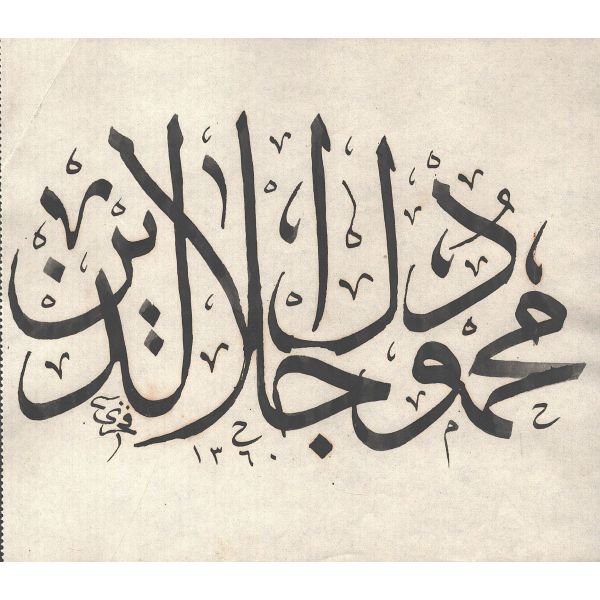 محمود جلال الدين
١٣٦٠